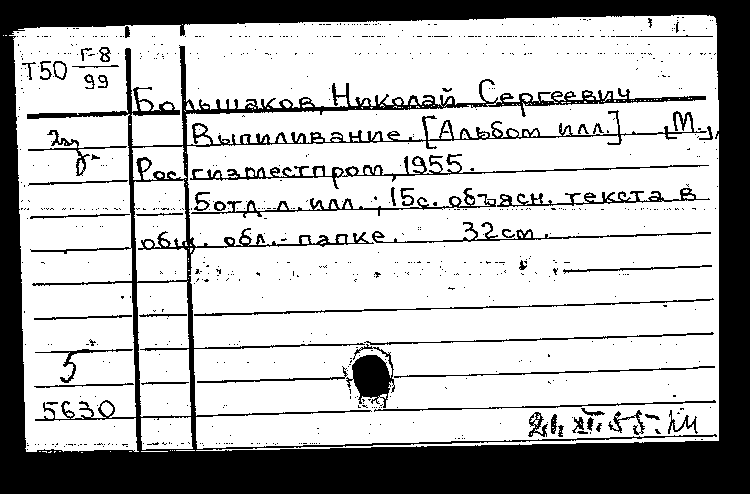 Т50 Г-8
99
Большаков, Николай Сергеевич
Выпиливание. [Альбом илл.]. [М.],
Росгизместпром, 1955.
5 отд. л. илл.; 15с. объясн. текста в
общ. обл.-папке. 32 см.
5
5630